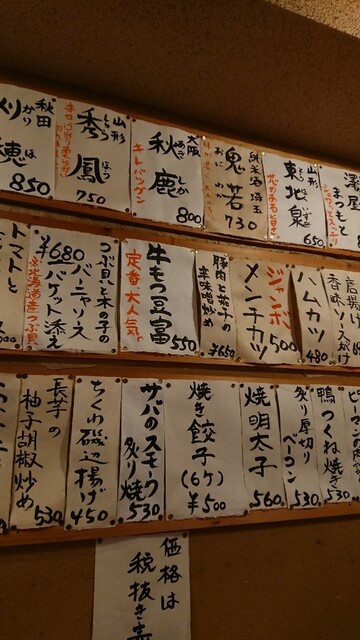 澤屋
まつもと
山形
東北泉
650
純米酒 埼玉
鬼若
おにわか
730
大阪
秋鹿
あきしか
キレバツグン
800
山形
秀鳳
しゅうほう
750
秋田
刈穂
かりほ
850
香味ソースがけ
ハムカツ
480
ジャンボ
メンチカツ
500
豚肉と茄子の
辛味噌炒め
¥650
牛もつ豆富
定番・大人気。
550
つぶ貝と木の子の
バーニャソース
バケット添え
¥680
※北海道産つぶ貝。
トマトと
鴨つくね焼き
530
炙り厚切り
ベーコン
530
焼明太子
560
焼き餃子
(6ヶ)
¥500
サバのスモーク
炙り焼
530
ちくわ磯辺揚げ
450
長芋の
柚子胡椒炒め
530
価格は
税抜き